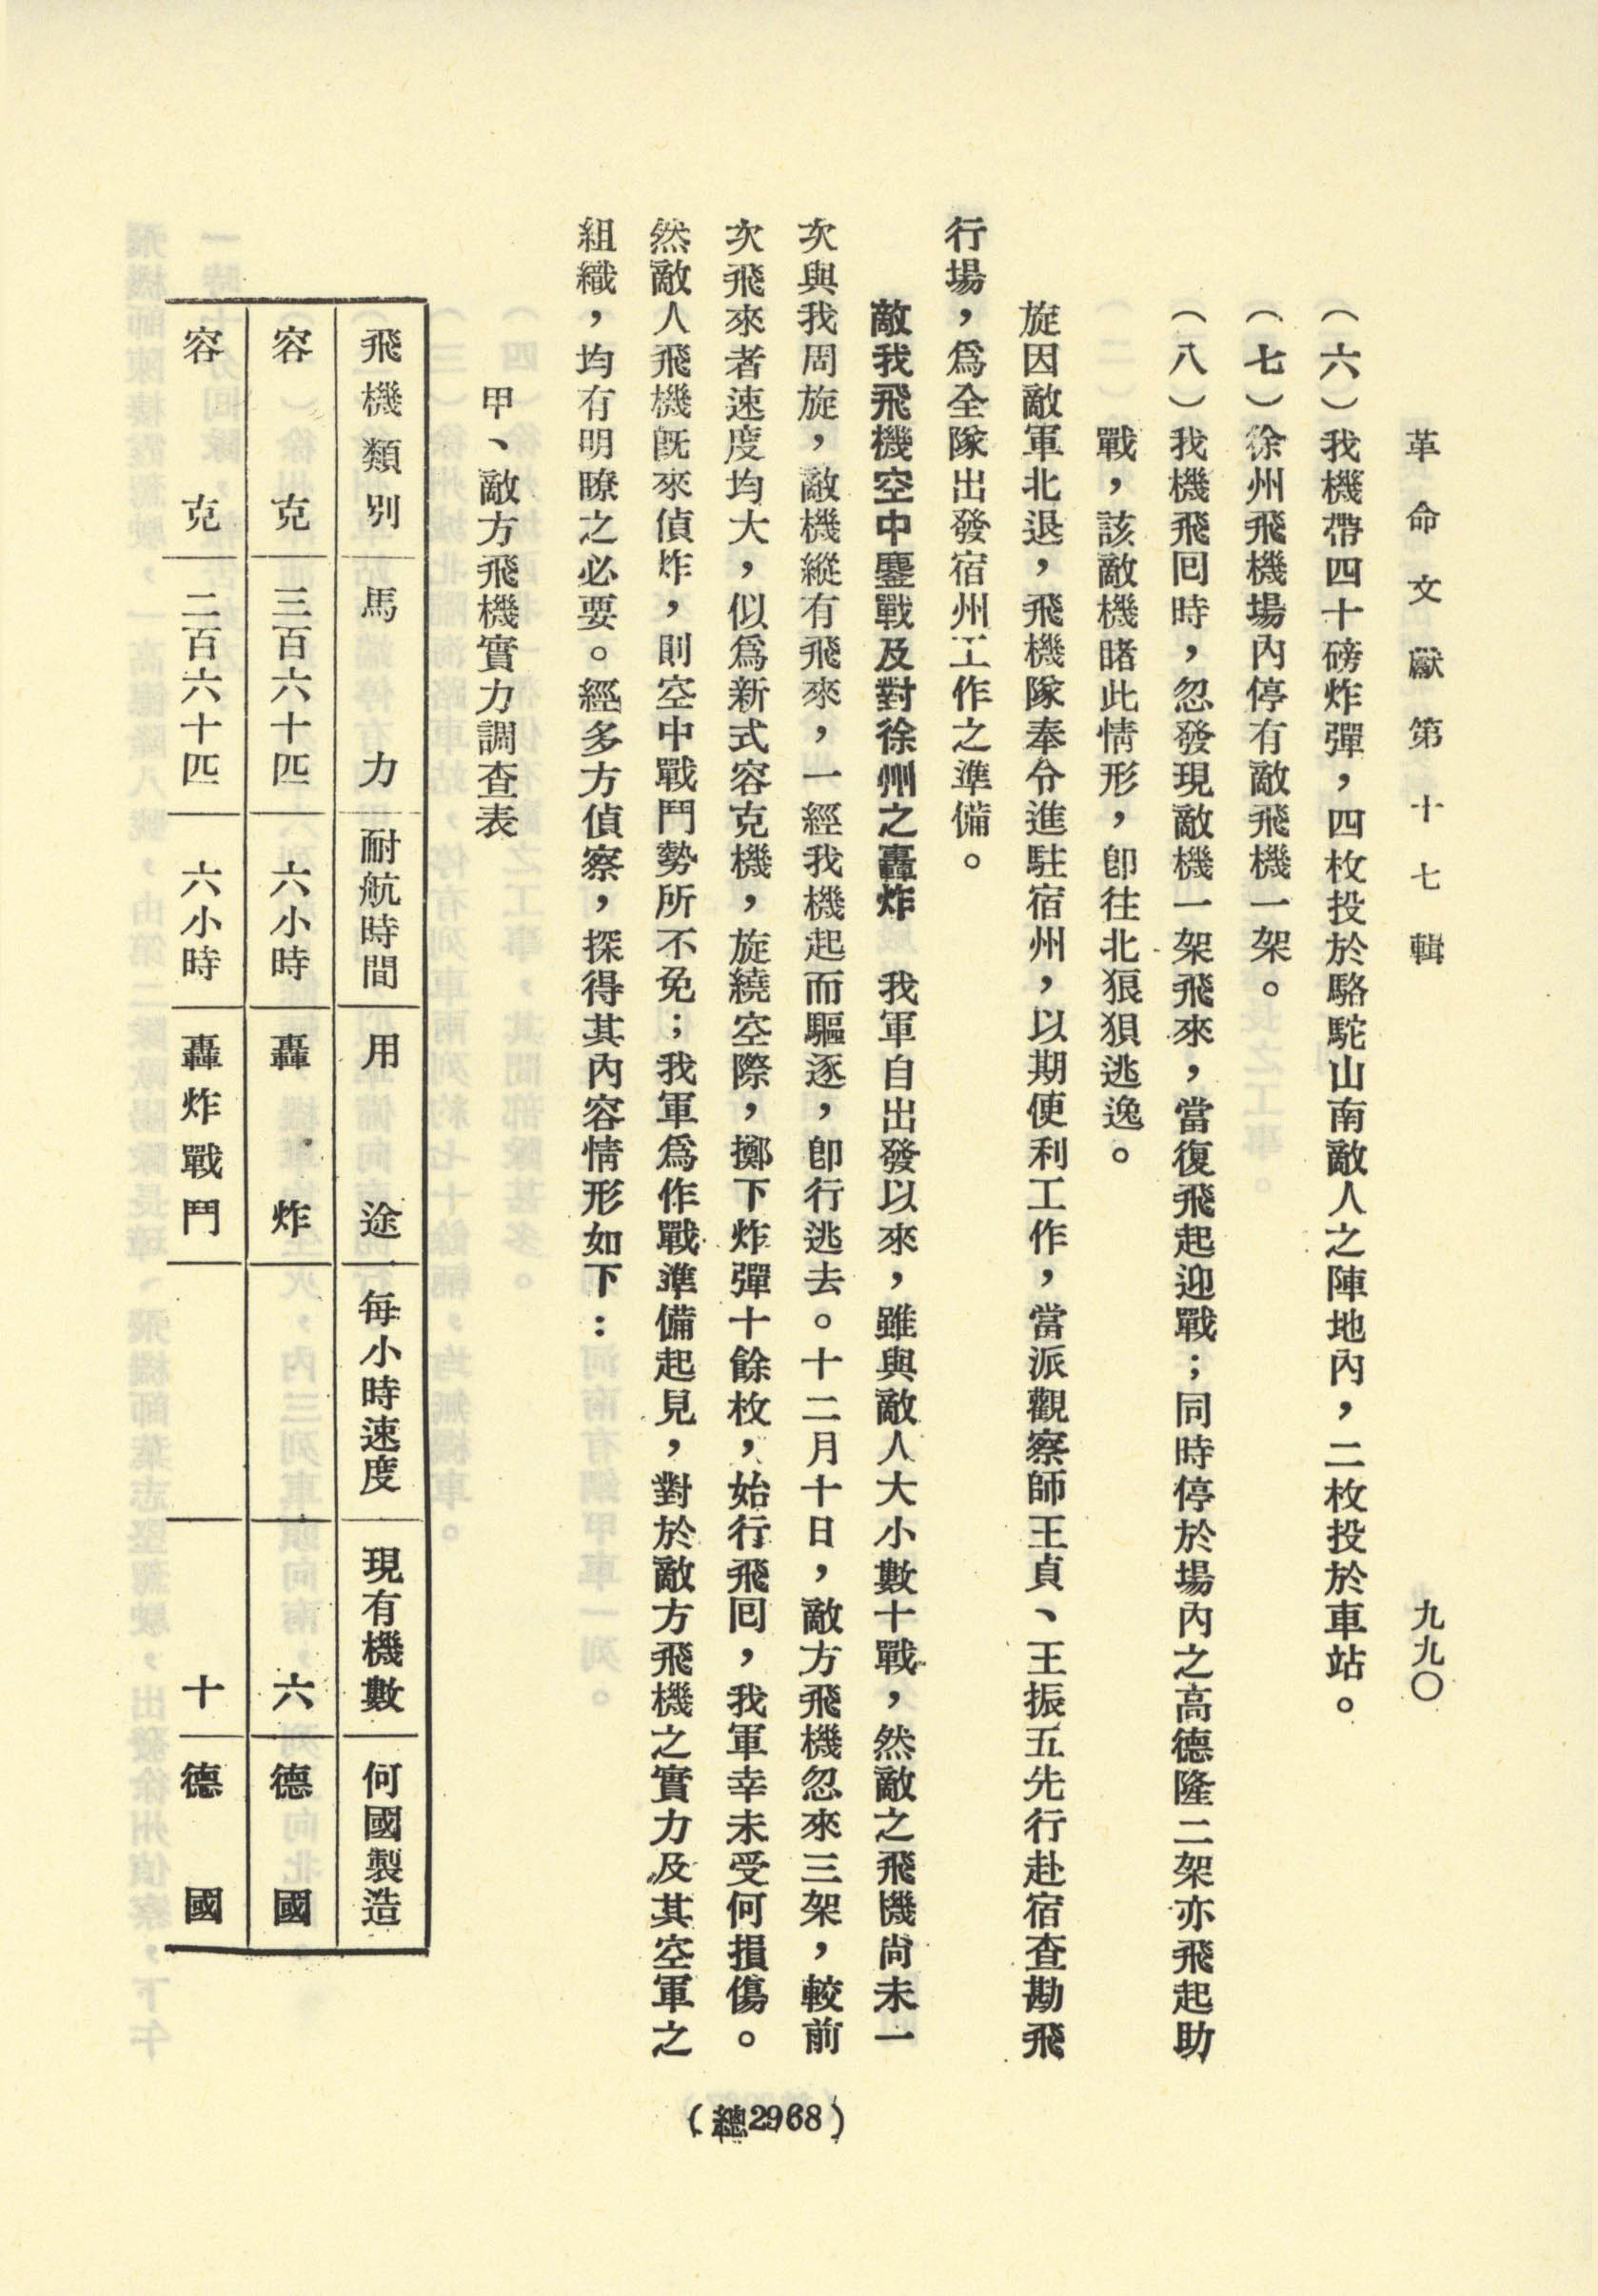 革命文獻第十七輯
九九〇
（六）我機帶四十磅炸彈，四枚投於駱駝山南敵人之陣地內，二枚投於車站。
（七）徐州飛機場內停有敵飛機一架。
（八）我機飛回時，忽發現敵機一架飛來，當復飛起迎戰；同時停於場內之高德隆二架亦飛起助
戰，該敵機睹此情形，卽往北狼狽逃逸。
旋因敵軍北退，飛機隊奉令進駐宿州，以期便利工作，當派觀察師王貞、王振五先行赴宿查勘飛
行場，爲全隊出發宿州工作之準備。
敵我飛機空中鏖戰及對徐州之轟炸　我軍自出發以來，雖與敵人大小數十戰，然敵之飛機尙未一
次與我周旋，敵機縱有飛來，一經我機起而驅逐，卽行逃去。十二月十日，敵方飛機忽來三架，較前
次飛來者速度均大，似爲新式容克機，旋繞空際，擲下炸彈十餘枚，始行飛回，我軍幸未受何損傷。
然敵人飛機旣來偵炸，則空中戰鬥勢所不免；我軍爲作戰準備起見，對於敵方飛機之實力及其空軍之
組織，均有明瞭之必要。經多方偵察，探得其內容情形如下：
甲、敵方飛機實力調查表
飛機類別　馬力　耐航時間　用途　每小時速度　現有機數　何國製造
容克　三百六十匹　六小時　轟炸　六　德國
容克　二百六十匹　六小時　轟炸戰鬥　十　德國
（總2968）